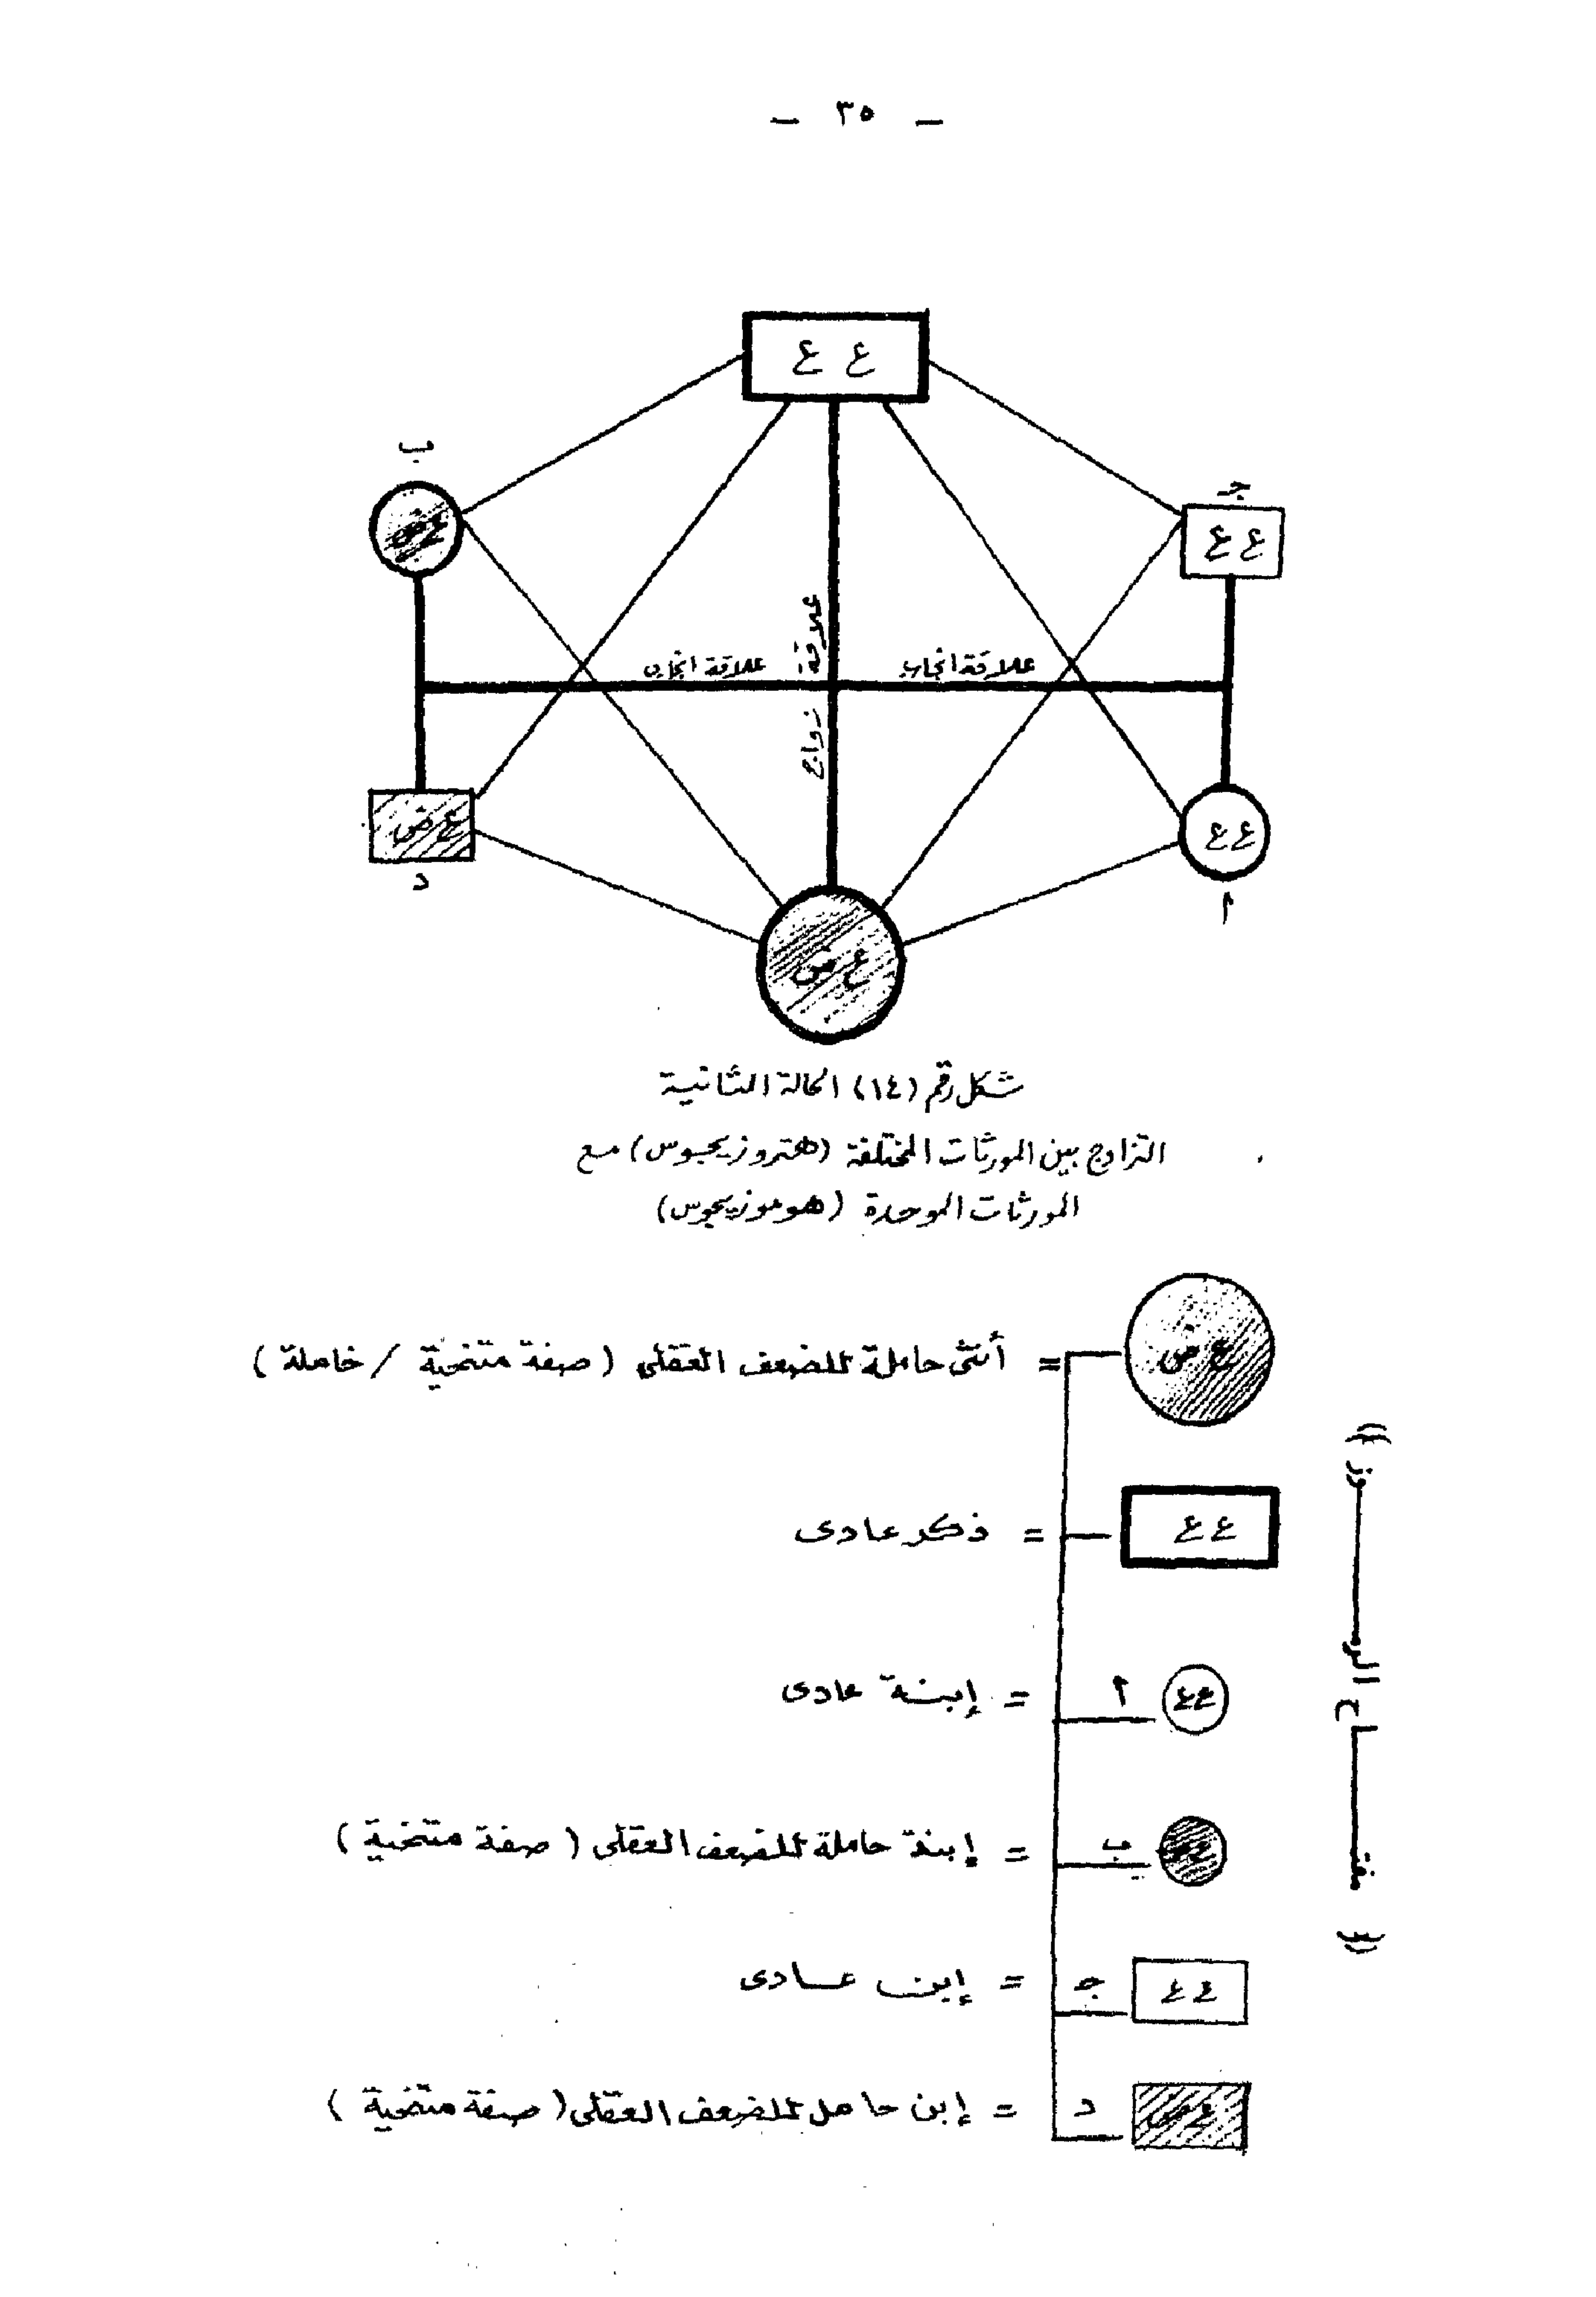 — ٣٥ —
ع ع
ب
ع ض
جـ
ع ع
علاقة زواج
علاقة انجاب
علاقة انجاب
ع ض
د
ع ع
أ
ع ض
شكل رقم (١٤) الحالة الثانية
التزاوج بين المورثات المختلفة (هتروزيجوس) مع
المورثات الموحدة (هوموزيجوس)
(( مفتاح الرموز ))
ع ض = أنثى حاملة للضعف العقلى (صفة متنحية / خاملة)
ع ع = ذكر عادى
ع ع أ = إبنة عادى
ع ض ب = إبنة حاملة للضعف العقلى (صفة متنحية)
ع ع جـ = إبن عادى
ع ض د = إبن حامل للضعف العقلى (صفة متنحية)